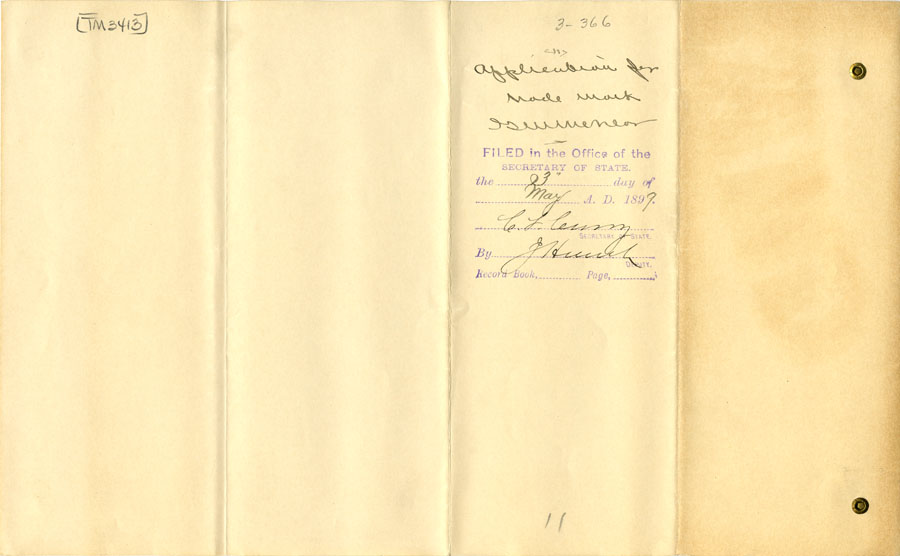 TM3413
3-366
Application for
trade mark
FILED in the Office of the
SECRETARY OF STATE.
the 23" day of
May A. D. 1899.
C. F. Curry
SECRETARY OF STATE.
By J Hoesch
DEPUTY.
Record Book, Page,
11